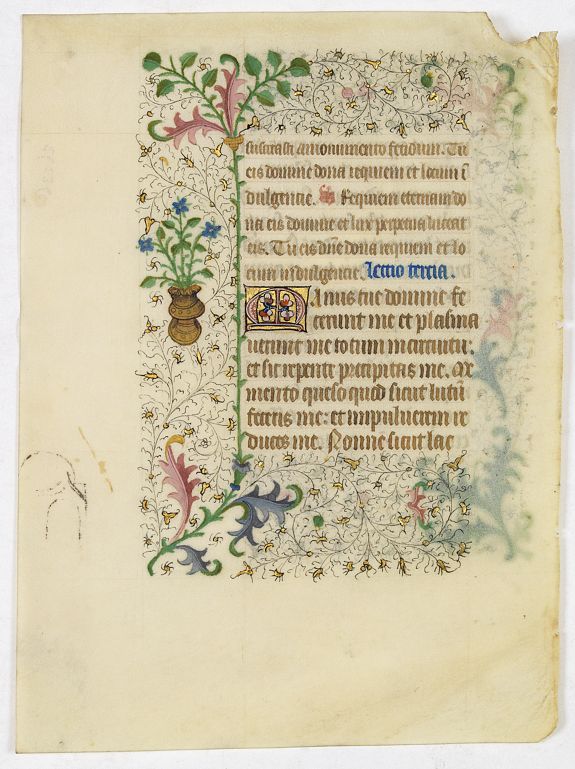 suscitasti a monumento fetidum. Tu
eis domine dona requiem et locum ī
dulgentie. R Requiem eternam do
na eis domine et lux perpetua luceat
eis. Tu eis dn̄e dona requiem et lo
cum indulgentie. Lectio tertia.
Manus tue domine fe
cerunt me et plasma
uerunt me totum in circuitu:
et sic repente precipitas me. Me
mento queso quod sicut lutū
feceris me: et in puluerem re
duces me. Nonne sicut lac